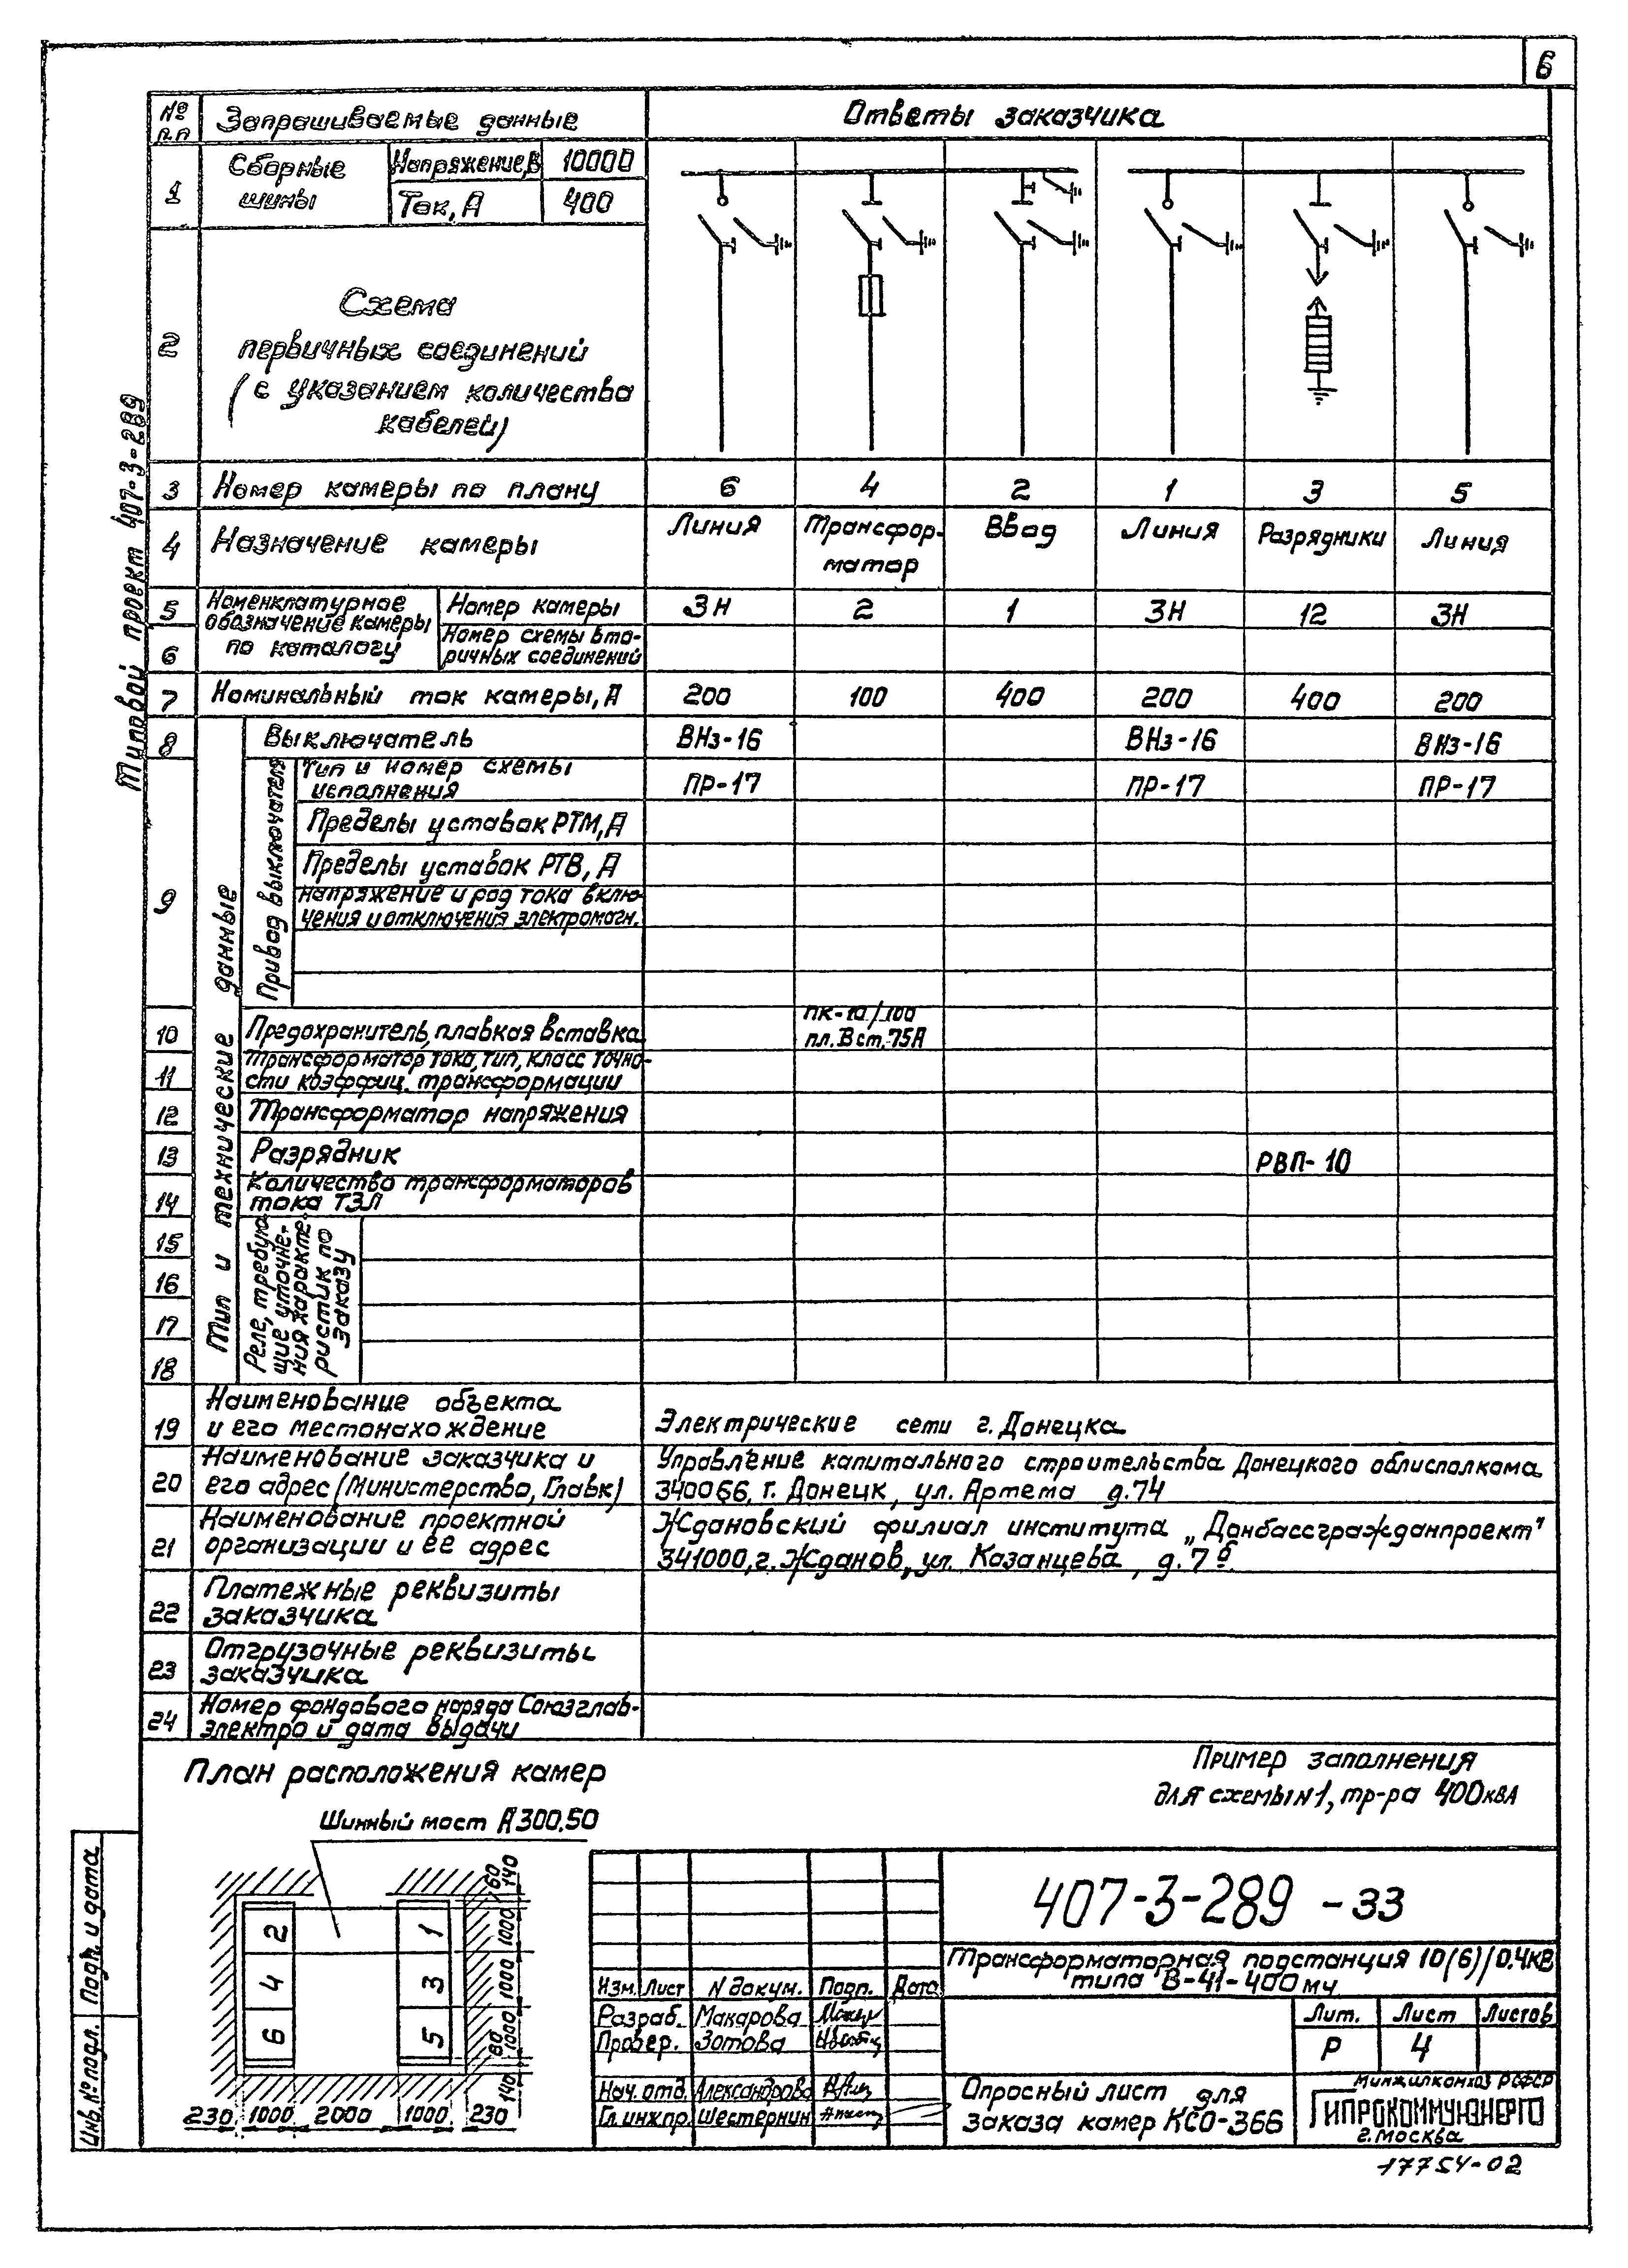 6
№ п.п
Запрашиваемые данные
Ответы заказчика
1
Сборные шины
Напряжение, В
10000
Ток, А
400
2
Схема
первичных соединений
(с указанием количества
кабелей)
3 Номер камеры по плану 6 4 2 1 3 5
4 Назначение камеры Линия Трансфор- Ввод Линия Разрядники Линия
матор
5 Номенклатурное обозначение камеры по каталогу
Номер камеры 3Н 2 1 3Н 12 3Н
6 Номер схемы вто-
ричных соединений
7 Номинальный ток камеры, А 200 100 400 200 400 200
Тип и технические данные
8 Выключатель ВНз-16 ВНз-16 ВНз-16
9 Привод выключателя
Тип и номер схемы
исполнения ПР-17 ПР-17 ПР-17
Пределы уставок РТМ, А
Пределы уставок РТВ, А
Напряжение и род тока вклю-
чения и отключения электромагн.
10 Предохранитель, плавкая вставка
ПК-10/100
пл. Вст. 75А
11 Трансформатор тока, тип, класс точно-
сти коэффиц. трансформации
12 Трансформатор напряжения
13 Разрядник РВП-10
14 Количество трансформаторов
тока ТЗЛ
15
16
17
18
Реле, требую-
щие уточне-
ния характе-
ристик по
заказу
19 Наименование объекта
и его местонахождение
Электрические сети г. Донецка
20 Наименование заказчика и
его адрес (Министерство, Главк)
Управление капитального строительства Донецкого облисполкома
340066, г. Донецк, ул. Артема д.74
21 Наименование проектной
организации и ее адрес
Ждановский филиал института „Донбассгражданпроект"
341000, г. Жданов, ул. Казанцева, д. 7б
22 Платежные реквизиты
заказчика
23 Отгрузочные реквизиты
заказчика
24 Номер фондового наряда Союзглав-
электро и дата выдачи
Типовой проект 407-3-289
План расположения камер
Шинный мост А300.50
Пример заполнения
для схемы №1, тр-ра 400 кВА
2
4
6
1
3
5
60
140
1000
1000
1000
80
140
230 1000 2000 1000 230
Инв. № подл. Подп. и дата
407-3-289 -ЭЭ
Трансформаторная подстанция 10(6)/0.4кВ
типа В-41-400 мч
Изм. Лист N докум. Подп. Дата
Разраб. Макарова
Провер. Зотова
Нач. отд. Александрова
Гл. инж.пр. Шестернин
Лит. Лист Листов
Р 4
Опросный лист для
заказа камер КСО-366
Минжилкомхоз РСФСР
ГИПРОКОММУНЭНЕРГО
г. Москва
17754-02